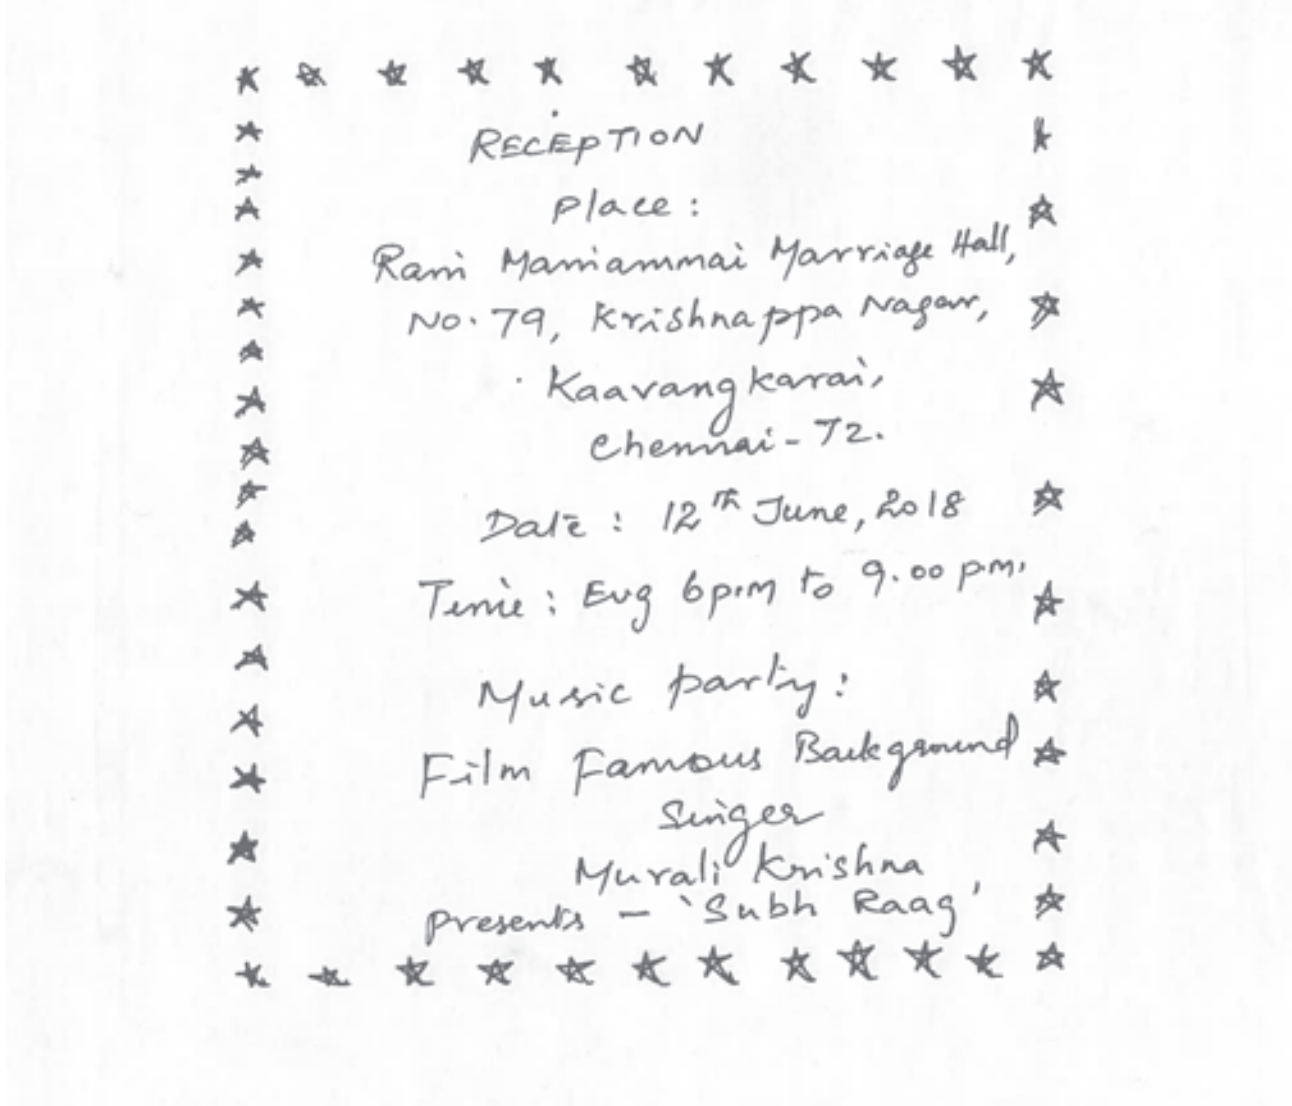 RECEPTION
Place:
Rani Maniammai Marriage Hall,
No. 79, Krishnappa Nagar,
Kaavangkarai,
Chennai - 72.
Date : 12th June, 2018
Time : Evg 6p.m to 9.00 pm.
Music party:
Film Famous Background
Singer
Murali Krishna
presents - 'Subh Raag'